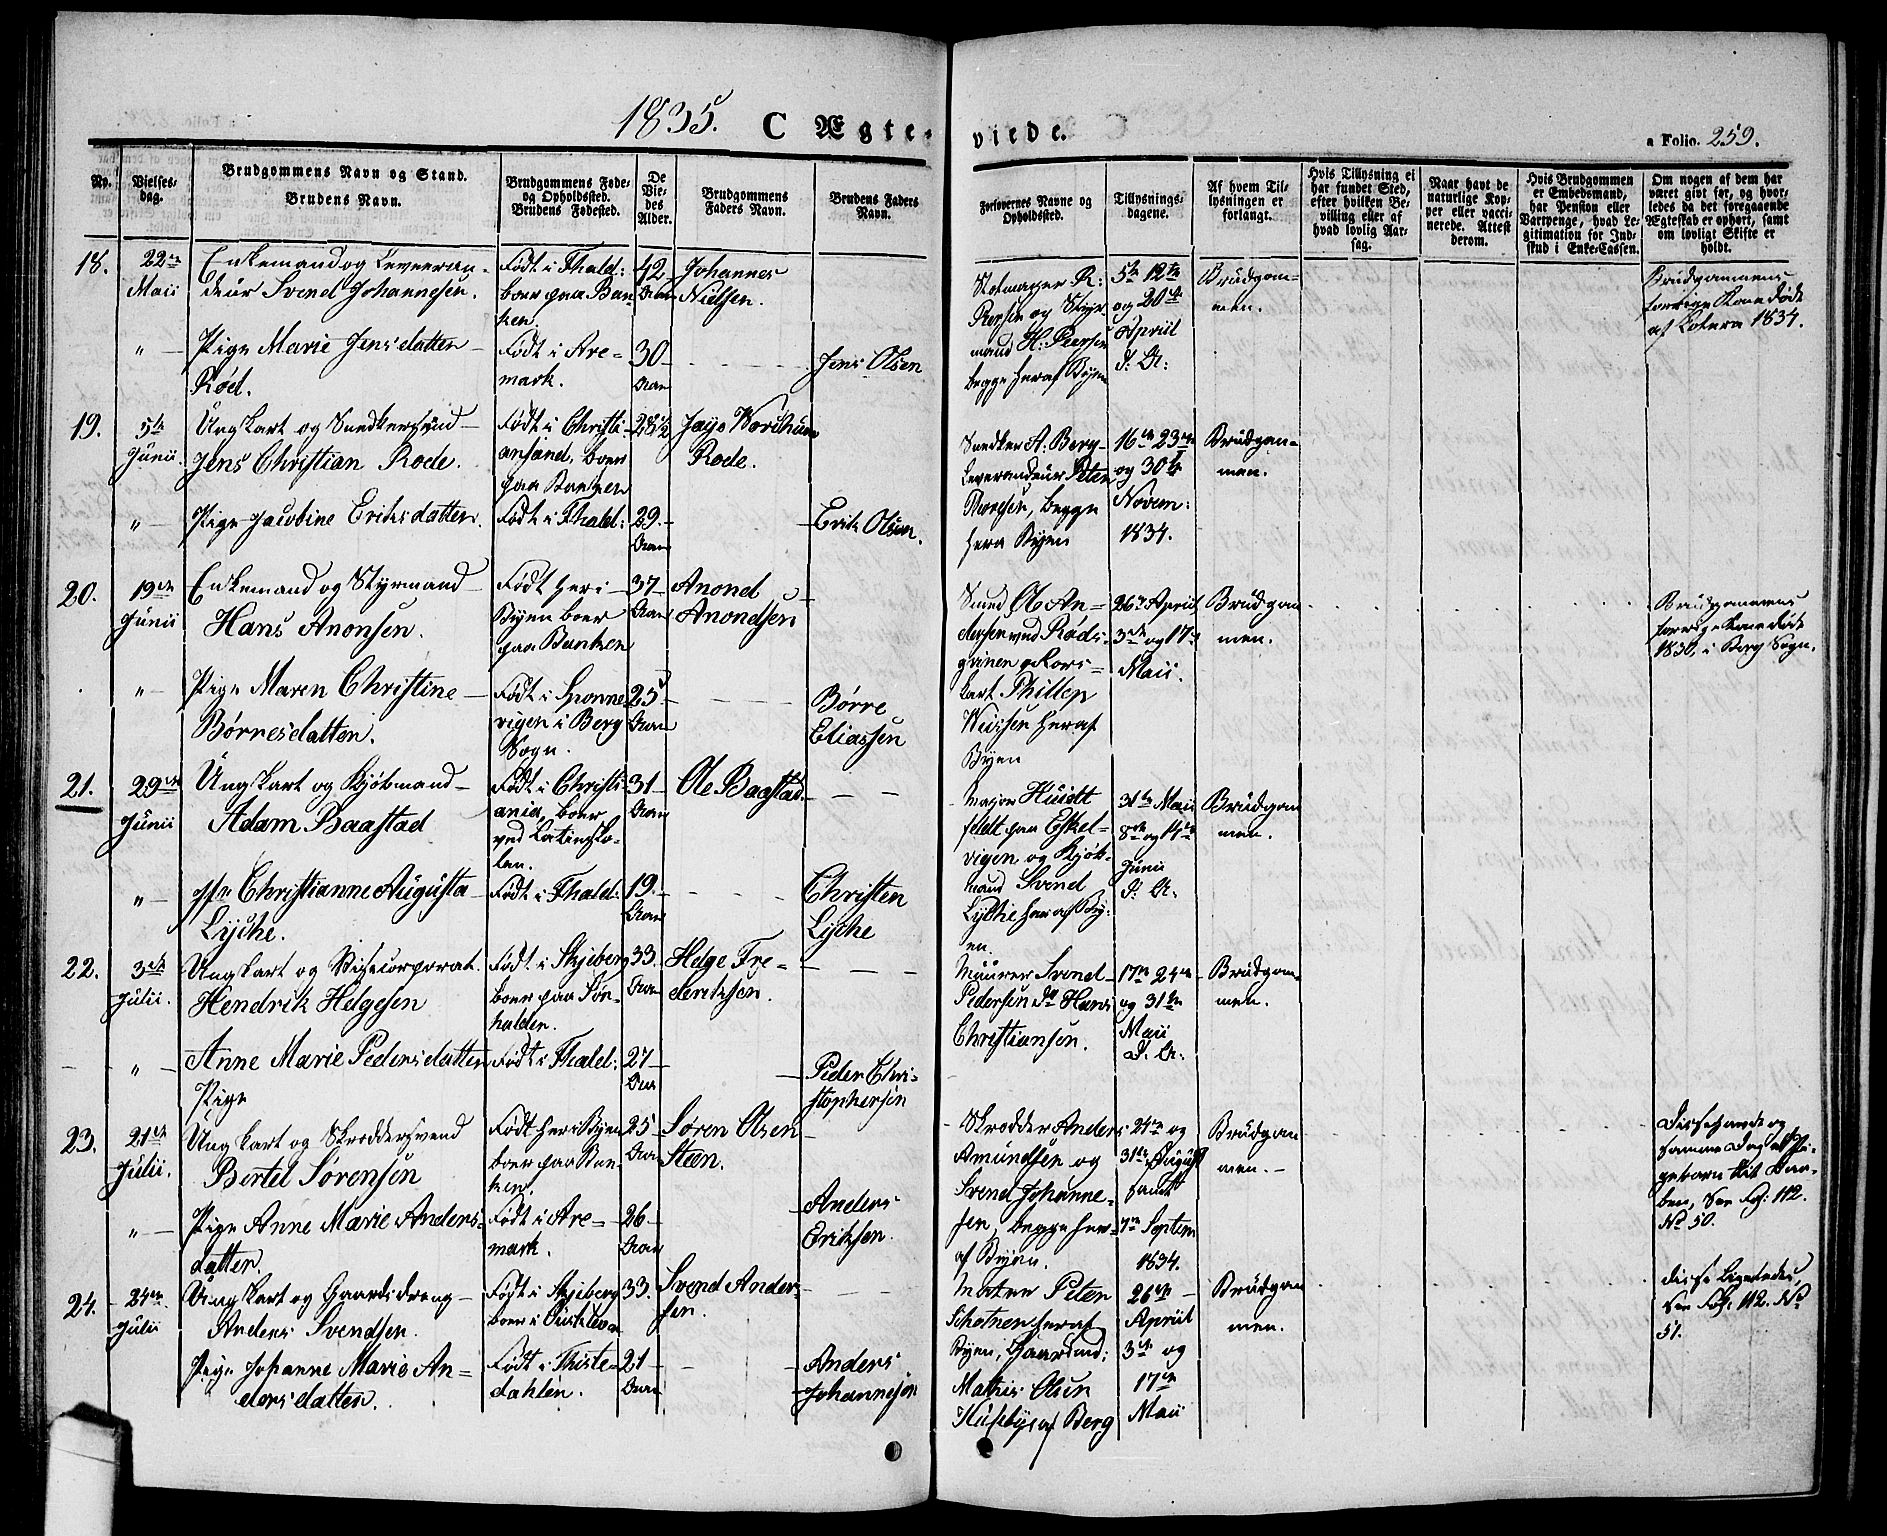 1835. C Ægte-
viede.
a Folio. 259.
No.
Vielses-
dag.
Brudgommens Navn og Stand.
Brudens Navn.
Brudgommens Føde-
og Opholdsted.
Brudens Fødested.
De
Vie-
des
Alder.
Brudgommens
Faders Navn.
Brudens Faders
Navn.
Forlovernes Navne og
Opholdsted.
Tillysnings-
dagene.
Af hvem Til-
lysningen er
forlangt.
Hvis Tillysning ei
har fundet Sted,
efter hvilken Be-
villing eller af
hvad lovlig Aar-
sag.
Naar havt de
naturlige Kop-
per eller vacci-
nerede. Attest
derom.
Hvis Brudgommen
er Embedsmand,
har Pension eller
Vartpenge, hvad Le-
gitimation for Ind-
skud i Enke-Cassen.
Om nogen af dem har
været givt før, og hvor-
ledes da det foregaaende
Ægteskab er ophørt, samt
om lovligt Skifte er
holdt.
18.
22de
Maii
Enkemand og Leveeran-
deur Svend Johannesen.
Født i Fhald:
boer paa Ban-
ken
42
Aar
Johannes
Nielsen.
og Styr
mand H:
begge heraf Byen
5te 12te
og 20de
Apriil
d: A:
Brudgom-
men.
Brudgommens
forrige Kone døde
af Colera 1834.
"
Pige Marie Jensdatter
Rød.
Født i Are-
mark.
30
Aar
Jens Olsen
19.
5te
Junii.
Ungkarl og Snedkersvend
Jens Christian Rode.
Født i Christi-
ansand, boer
paa Banken
28½
Rode.
Snedker A: Berg
Leverandeur Peter
begge
hera Byen
16de 23de
og 30te
Novem:
1834.
Brudgom-
men.
"
Pige Jacobine Eriksdatter.
Født i Fhald:
29.
Aar
Erik Olsen.
20.
19de
Junii
Enkemand og Styrmand
Hans Anonsen.
Født her i
Byen boer
paa Banken
37
Aar
Anond
Anondsen
Smed Ole An-
dersen ved Røds-
Byen
26de Apriil
3die og 17de
Maii.
Brudgom
men.
Brudgommens
forrige Kone døde
1830, i Berg Sogn.
"
Pige Maren Christine
Børresdatter.
Født i Sponne
vigen i Berg
Sogn.
25
Aar
Børre
Eliassen
21.
29de
Junii
Ungkarl og Kjøbmand
Adam Baastad
Født i Christi-
ania, boer
ved Latinsko-
len.
31
Aar
Ole Baastad.
Major Huidt
feldt paa Eskel-
vigen og Kjøb-
mand Svend
Lyche her af By-
en.
31te Maii
8de og 14de
Junii
d: A:
Brudgom
men.
"
Jfr Christianne Augusta
Lyche.
Født i Fhald:
19.
Aar
Christen
Lyche
22.
3die
Julii.
Ungkarl og Vicecorporal.
Hendrik Helgesen
Født i Skjeberg
boer paa Søn-
halden.
33.
Aar
Helge Fre-
deriksen.
Muurer Svend
Pedersen do Hans
Christiansen.
17de 24de
og 31te
Maii
d. A:
Brudgom-
men.
"
Anne Marie Pedersdatter
Pige
Født i Fhald:
27
Aar
Peder Chri-
stophersen
23.
21de
Julii.
Ungkarl og Skræddersvend
Bertel Sørensen
Født her i Byen
boer paa Ban-
ken.
25
Aar
Søren Olsen
Steen.
Skrædder Anders
Amundsen og
Svend Johanne-
sen, begge her-
af Byen.
24de og
31te August
samt
7de Septem
1834.
Brudgom
men.
Disse havde
samme Dag et Pi-
gebarn til Daa-
ben, See Fol: 112.
No 50.
"
Pige Anne Marie Anders-
datter.
Født i Are-
mark.
26
Aar
Anders
Eriksen.
24.
24de
Julii
Ungkarl og Gaardsdreng
Anders Svendsen.
Født i Skjeberg
33.
Svend Ander-
sen.
Peter
heraf
Byen,
Mathis Olsen
Huseby af Berg
26de
Apriil
3die og
17de
Maii
Brudgom
men.
disse Ligeledes,
See Fol: 112. No
51.
Pige Johanne Marie An-
dersdatter.
Født i Thiste-
dahlen.
21
Aar
Anders
Johannesen